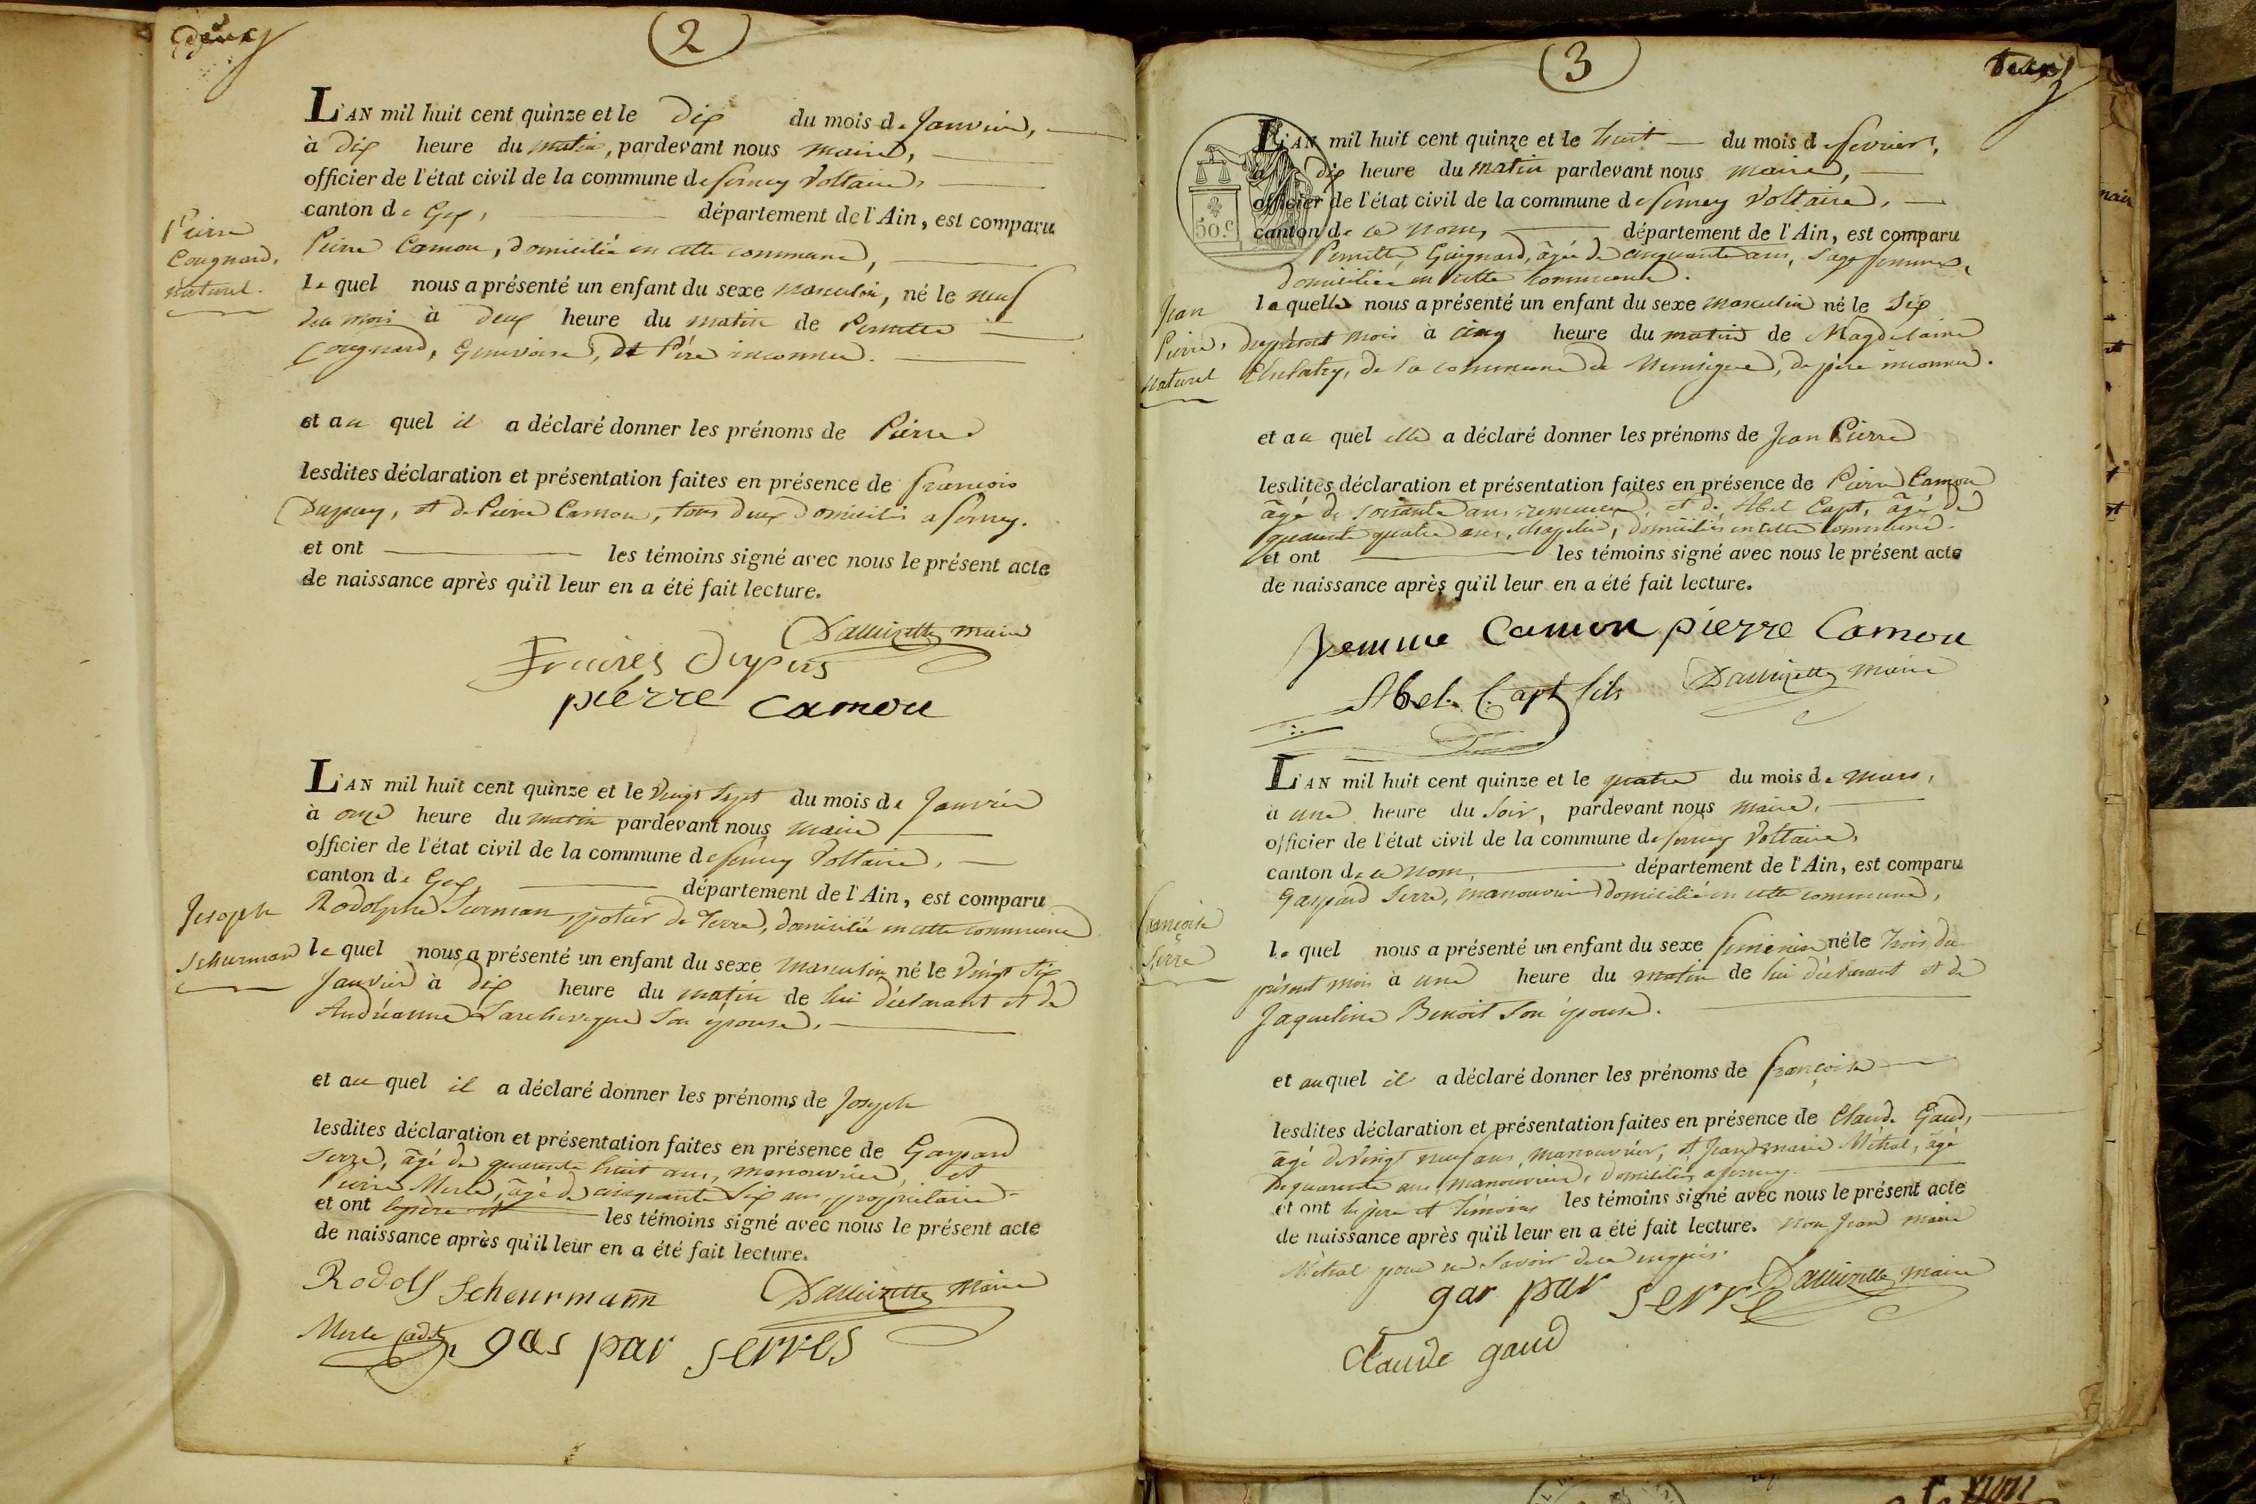 deux
(2)
L'AN mil huit cent quinze et le Dix du mois de Janvier,
à Dix heure du matin, pardevant nous maire,
officier de l'état civil de la commune de ferney Voltaire,
canton de Gex, département de l'Ain, est comparu
Pierre Camou, domicilié en cette commune,
Pierre
Cougnard,
naturel.
le quel nous a présenté un enfant du sexe masculin, né le neuf
du mois à deux heure du matin de Pernette
Cougnard, Genevoise, et Père inconnu.
et au quel il a déclaré donner les prénoms de Pierre
lesdites déclaration et présentation faites en présence de françois
Dupuy, et de Pierre Camou, tous deux domiciliés a ferney.
et ont les témoins signé avec nous le présent acte
de naissance après qu'il leur en a été fait lecture.
maire
pierre camou
L'AN mil huit cent quinze et le Vingt Sept du mois de Janvier
à onze heure du matin pardevant nous maire
officier de l'état civil de la commune de ferney Voltaire,
canton de Gex, département de l'Ain, est comparu
Rodolphe Scurman, potier de Terre, domicilié en cette commune
Joseph
Schurman
le quel nous a présenté un enfant du sexe masculin né le Vingt Six
Janvier à dix heure du matin de lui déclarant et de
Andréanne Larcheveque Son épouse,
et au quel il a déclaré donner les prénoms de Joseph
lesdites déclaration et présentation faites en présence de Gaspard
Serre, âgé de quarante huit ans, manouvrier, et
Pierre Merle, âgé de cinquante Six ans, propriétaire
et ont le père et les témoins signé avec nous le présent acte
de naissance après qu'il leur en a été fait lecture.
Rodolf Scheurmann
maire
Merle
gas par serres
(3)
deux
L'AN mil huit cent quinze et le huit du mois de fevrier,
à dix heure du matin pardevant nous maire,
officier de l'état civil de la commune de ferney Voltaire,
50.c
canton de ce nom, département de l'Ain, est comparu
Pernette Guignard, âgée de cinquante ans, Sage femme,
domiciliée en cette commune.
Jean
Pierre,
naturel
la quelle nous a présenté un enfant du sexe masculin né le Six
du présent mois à cinq heure du matin de Magdelaine
de la commune de de père inconnu.
et au quel elle a déclaré donner les prénoms de Jean Pierre
lesdites déclaration et présentation faites en présence de Pierre Camou
âgé de soixante ans et de Abel Capt, âgé de
quarante quatre ans, chapelier, domiciliés en cette commune.
et ont les témoins signé avec nous le présent acte
de naissance après qu'il leur en a été fait lecture.
femme Camou pierre Camou
Abel Capt fils maire
L'AN mil huit cent quinze et le quatre du mois de mars,
à une heure du Soir, pardevant nous maire,
officier de l'état civil de la commune de ferney Voltaire,
canton de ce nom, département de l'Ain, est comparu
Gaspard Serre, manouvrier domicilié en cette commune,
françoise
Serre
le quel nous a présenté un enfant du sexe feminin né le trois du
présent mois à une heure du matin de lui déclarant et de
Jaqueline Benoit Son épouse.
et au quel il a déclaré donner les prénoms de françoise
lesdites déclaration et présentation faites en présence de Claude Gaud,
âgé de Vingt neuf ans, manouvrier, et Jean marie Métral, âgé
de quarante ans, manouvrier, domiciliés a ferney.
et ont le père et témoins les témoins signé avec nous le présent acte
de naissance après qu'il leur en a été fait lecture. non Jean marie
Métral pour ne Savoir de ce enquis.
gas par serre maire
claude gaud